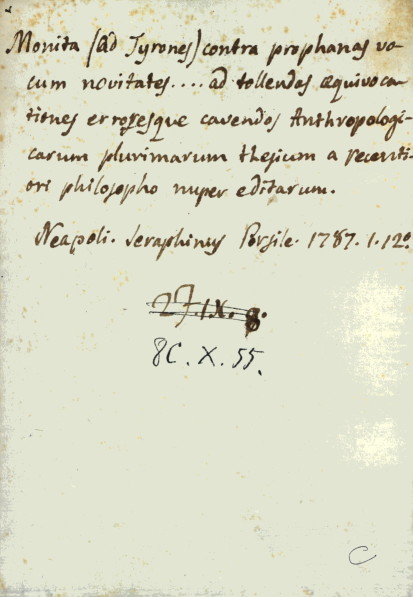 Monita (ad Tyrones) contra prophanas vo-
cum novitates.... ad tollendos æquivoca-
tiones erroresque cavendos Anthropologi-
carum plurimarum thesium a recenti-
ori philosopho nuper editarum.
Neapoli. Seraphinus Porsile. 1787. 1. 12º
27.IX. g.
8C. X. 55.
C